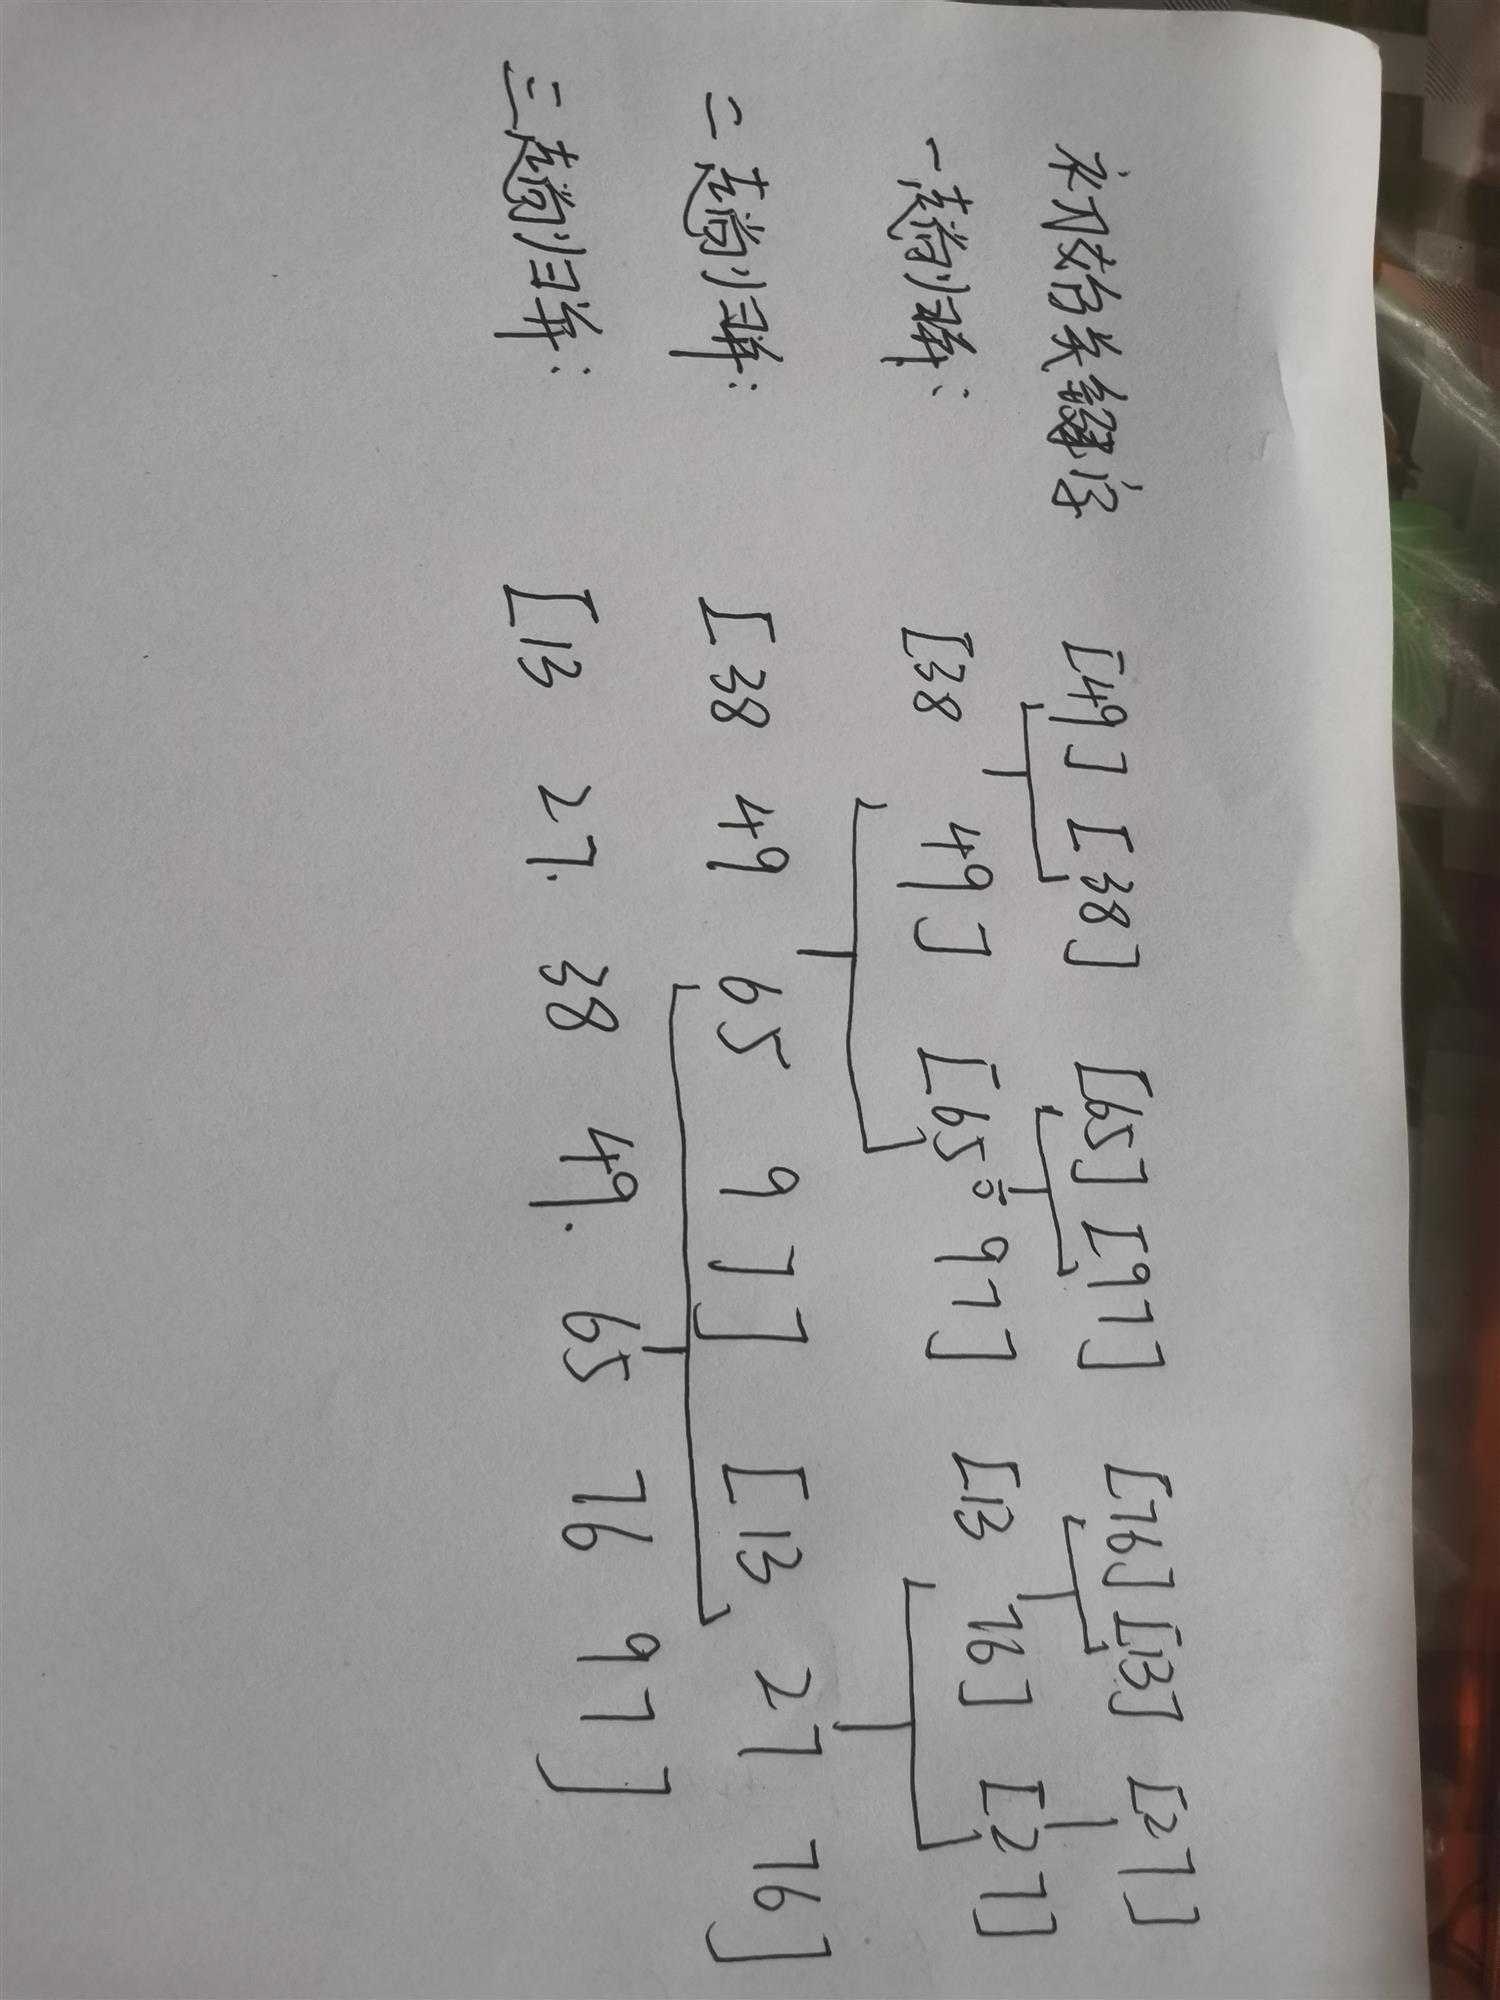 初始关键字 [49] [38] [65] [97] [76] [13] [27]
一趟归并: [38 49] [65 97] [13 76] [27]
二趟归并: [38 49 65 97] [13 27 76]
三趟归并: [13 27. 38 49. 65 76 97]